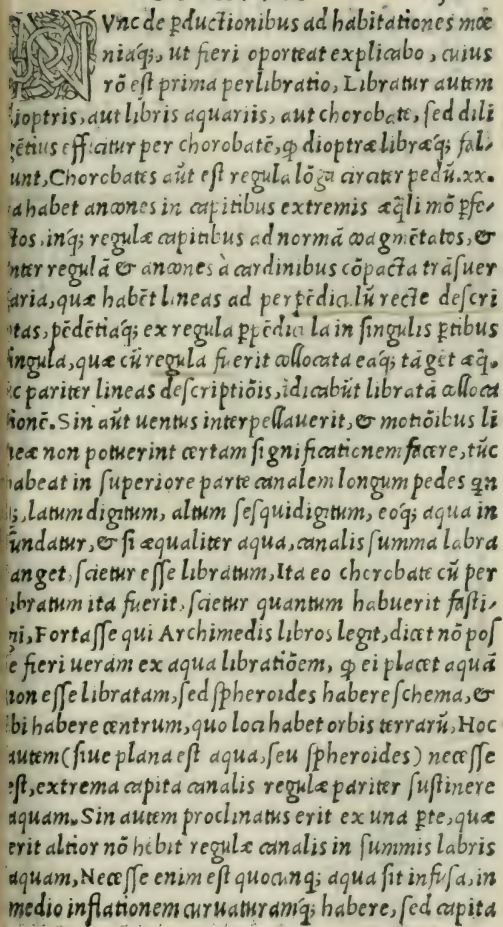 NVnc de ꝑductionibus ad habitationes moe
niaq;, ut fieri oporteat explicabo, cuius
rõ est prima perlibratio, Libratur autem
dioptris, aut libris aquariis, aut chorobate, sed dili
gẽtius efficitur per chorobatẽ, ꝙ dioptræ libræq; fal-
lunt, Chorobates aũt est regula lõga circiter pedũ.xx.
ea habet ancones in capitibus extremis æq̃li mõ ꝑfe-
ctos, inq; regulæ capitibus ad normã coagmẽtatos, &
inter regulã & ancones à cardinibus cõpacta trãsuer
saria, quæ habẽt lineas ad perpẽdiculũ recte descri
ptas, pẽdẽtiaq; ex regula ꝑpẽdicula in singulis ꝑtibus
singula, quæ cũ regula fuerit collocata eaq; tãget æq̃.
ac pariter lineas descriptiõis, ĩdicabũt libratã colloca
tionẽ. Sin aũt uentus interpellauerit, & motiõibus li
neæ non potuerint certam significationem facere, tũc
habeat in superiore parte canalem longum pedes qn
q;, latum digitum, altum sesquidigitum, eoq; aqua in
fundatur, & si æqualiter aqua, canalis summa labra
tanget, scietur esse libratum, Ita eo chorobate cũ per
libratum ita fuerit, scietur quantum habuerit fasti-
gii, Fortasse qui Archimedis libros legit, dicet nõ pos
se fieri ueram ex aqua libratiõem, ꝙ ei placet aquã
non esse libratam, sed spheroides habere schema, &
ibi habere centrum, quo loci habet orbis terrarũ, Hoc
autem (siue plana est aqua, seu spheroides) necesse
est, extrema capita canalis regulæ pariter sustinere
aquam. Sin autem proclinatus erit ex una ꝑte, quæ
erit altior nõ hẽbit regulæ canalis in summis labris
aquam, Necesse enim est quocunq; aqua sit infusa, in
medio inflationem curuaturamq; habere, sed capita